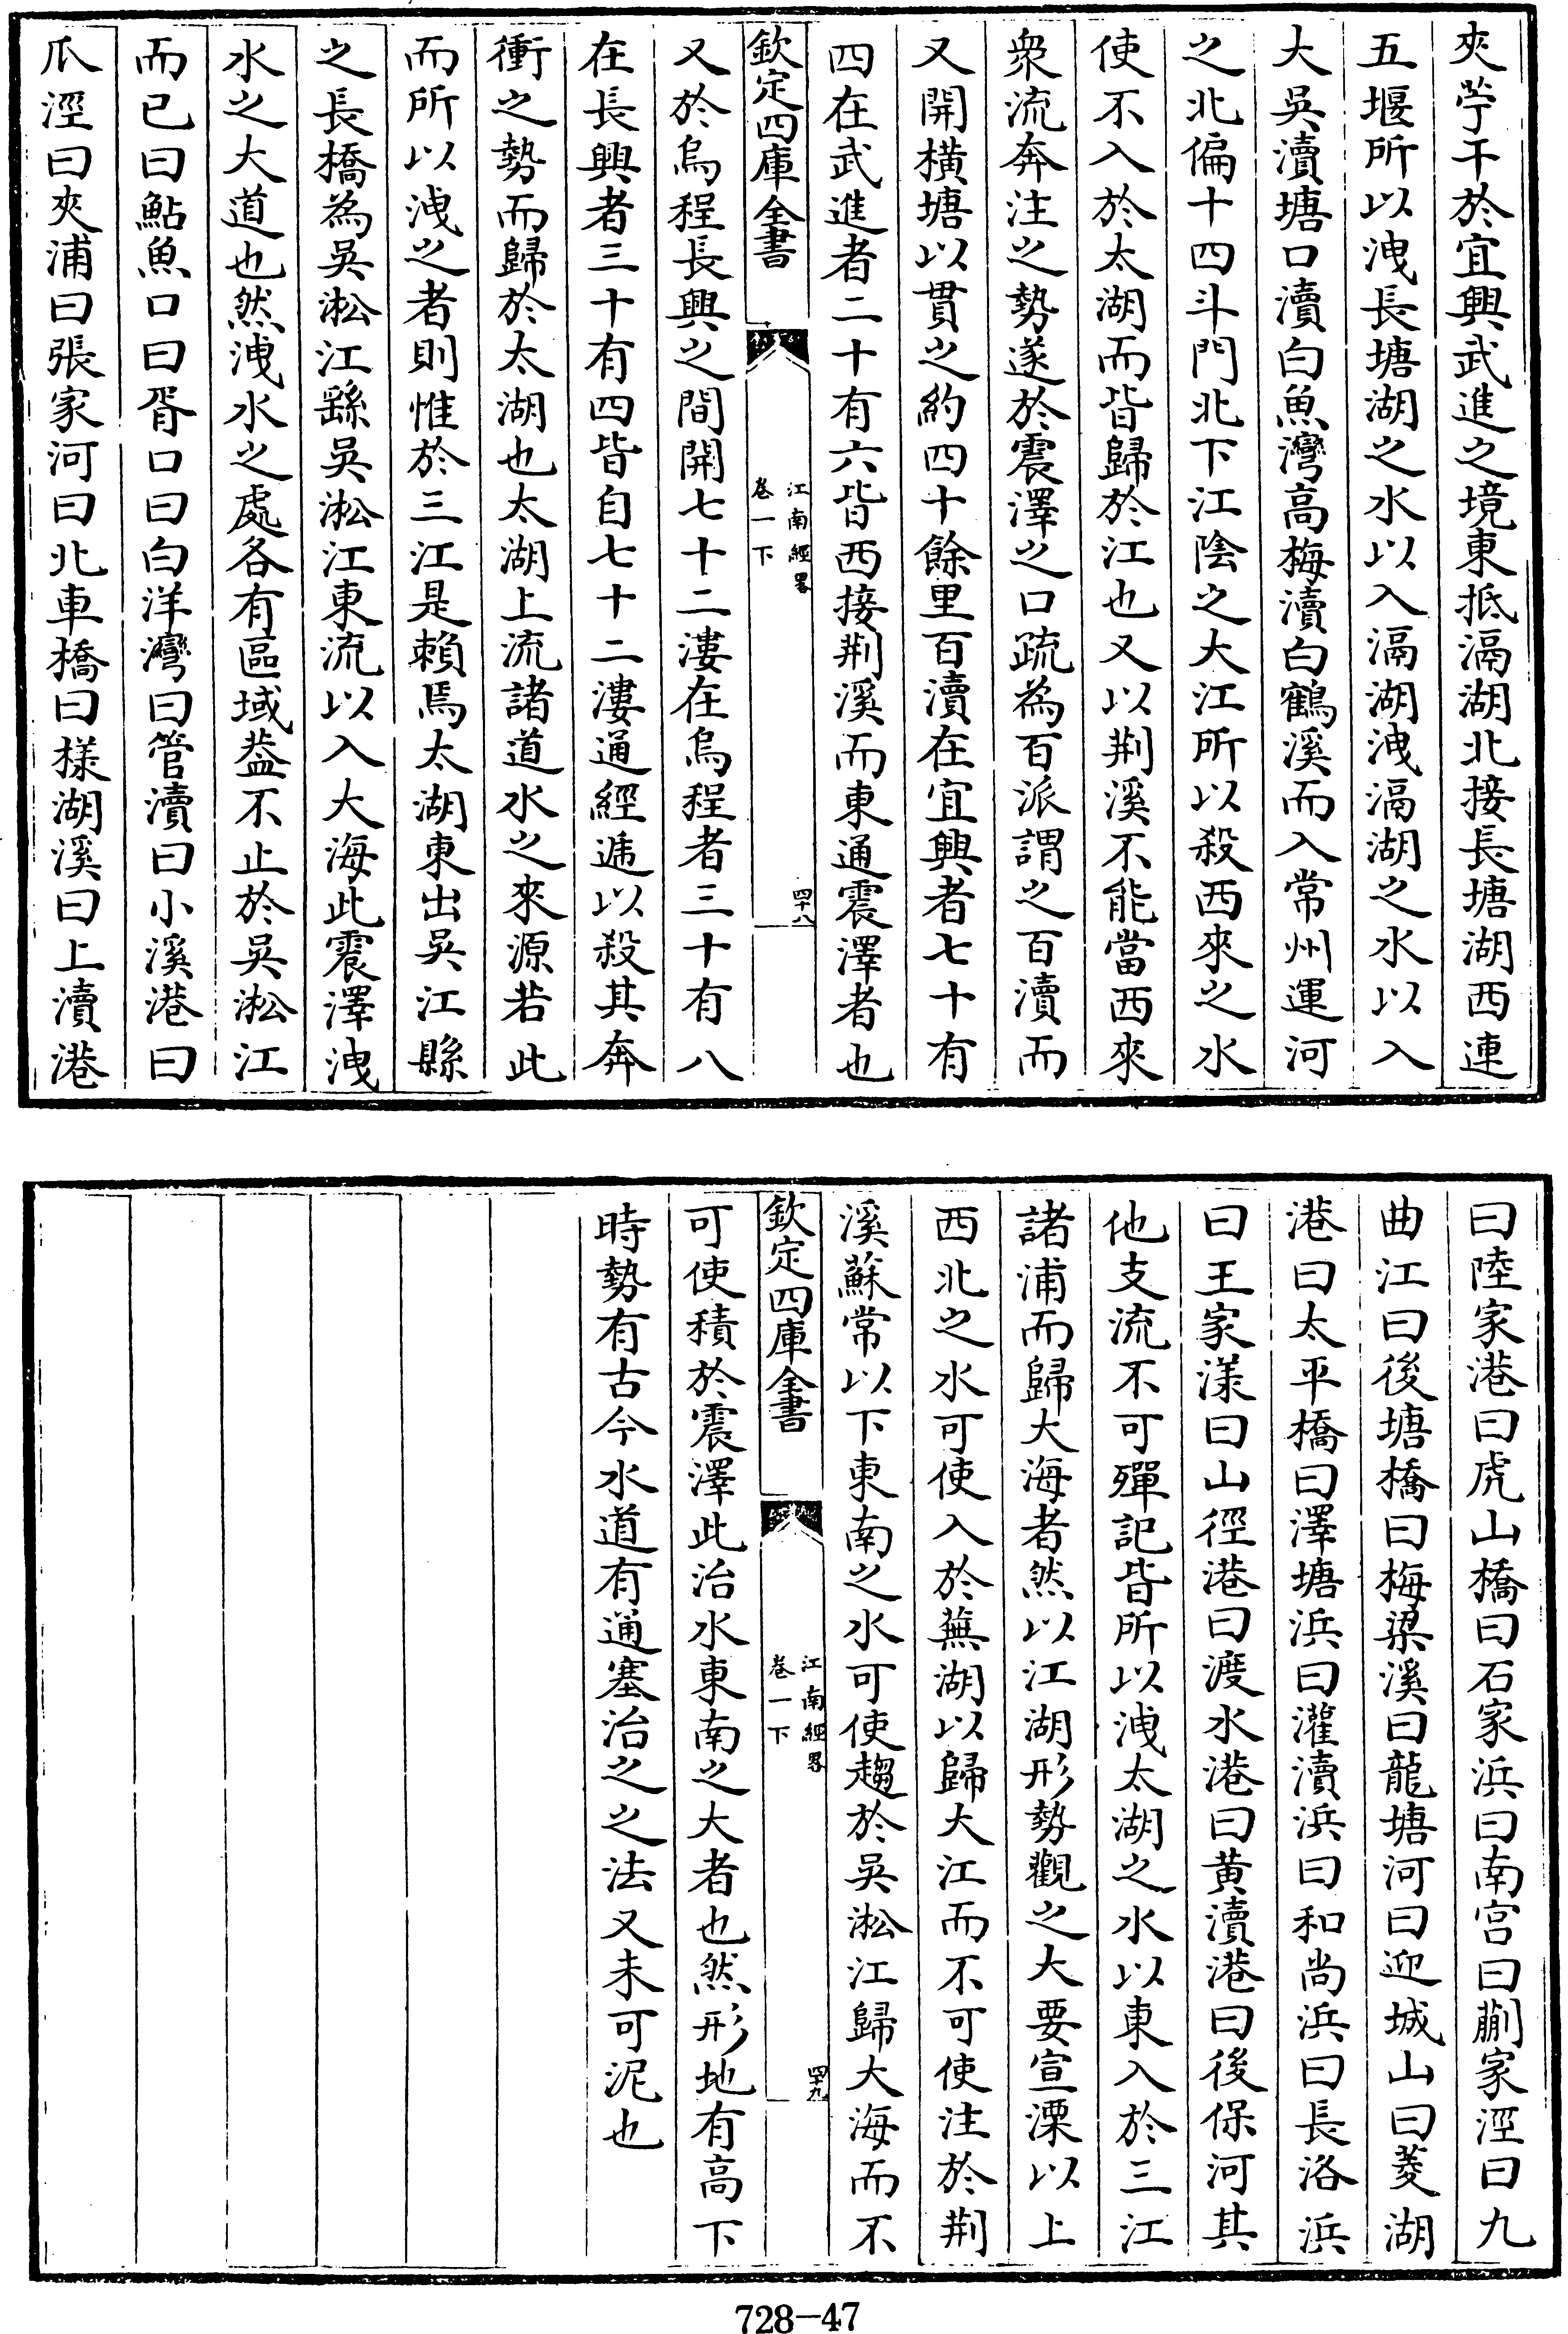 夾苧干於宜興武進之境東抵滆湖北接長塘湖西連
五堰所以洩長塘湖之水以入滆湖洩滆湖之水以入
大吳瀆塘口瀆白魚灣高梅瀆白鶴溪而入常州運河
之北偏十四斗門北下江陰之大江所以殺西來之水
使不入於太湖而皆歸於江也又以荆溪不能當西來
衆流奔注之勢遂於震澤之口疏為百派謂之百瀆而
又開橫塘以貫之約四十餘里百瀆在宜興者七十有
四在武進者二十有六皆西接荆溪而東通震澤者也
欽定四庫全書
江南經畧
卷一下
四十八
又於烏程長興之間開七十二漊在烏程者三十有八
在長興者三十有四皆自七十二漊通經遞以殺其奔
衝之勢而歸於太湖也太湖上流諸道水之來源若此
而所以洩之者則惟於三江是賴焉太湖東出吳江縣
之長橋為吳淞江繇吳淞江東流以入大海此震澤洩
水之大道也然洩水之處各有區域葢不止於吳淞江
而已曰鮎魚口曰胥口曰白洋灣曰管瀆曰小溪港曰
爪涇曰夾浦曰張家河曰北車橋曰様湖溪曰上瀆港
曰陸家港曰虎山橋曰石家浜曰南宫曰蒯家涇曰九
曲江曰後塘橋曰梅梁溪曰龍塘河曰迎城山曰菱湖
港曰太平橋曰澤塘浜曰灌瀆浜曰和尚浜曰長洛浜
曰王家漾曰山徑港曰渡水港曰黄瀆港曰後保河其
他支流不可殫記皆所以洩太湖之水以東入於三江
諸浦而歸大海者然以江湖形勢觀之大要宣溧以上
西北之水可使入於蕪湖以歸大江而不可使注於荆
溪蘇常以下東南之水可使趨於吳淞江歸大海而不
欽定四庫全書
江南經畧
卷一下
四十九
可使積於震澤此治水東南之大者也然形地有高下
時勢有古今水道有通塞治之之法又未可泥也
728-47